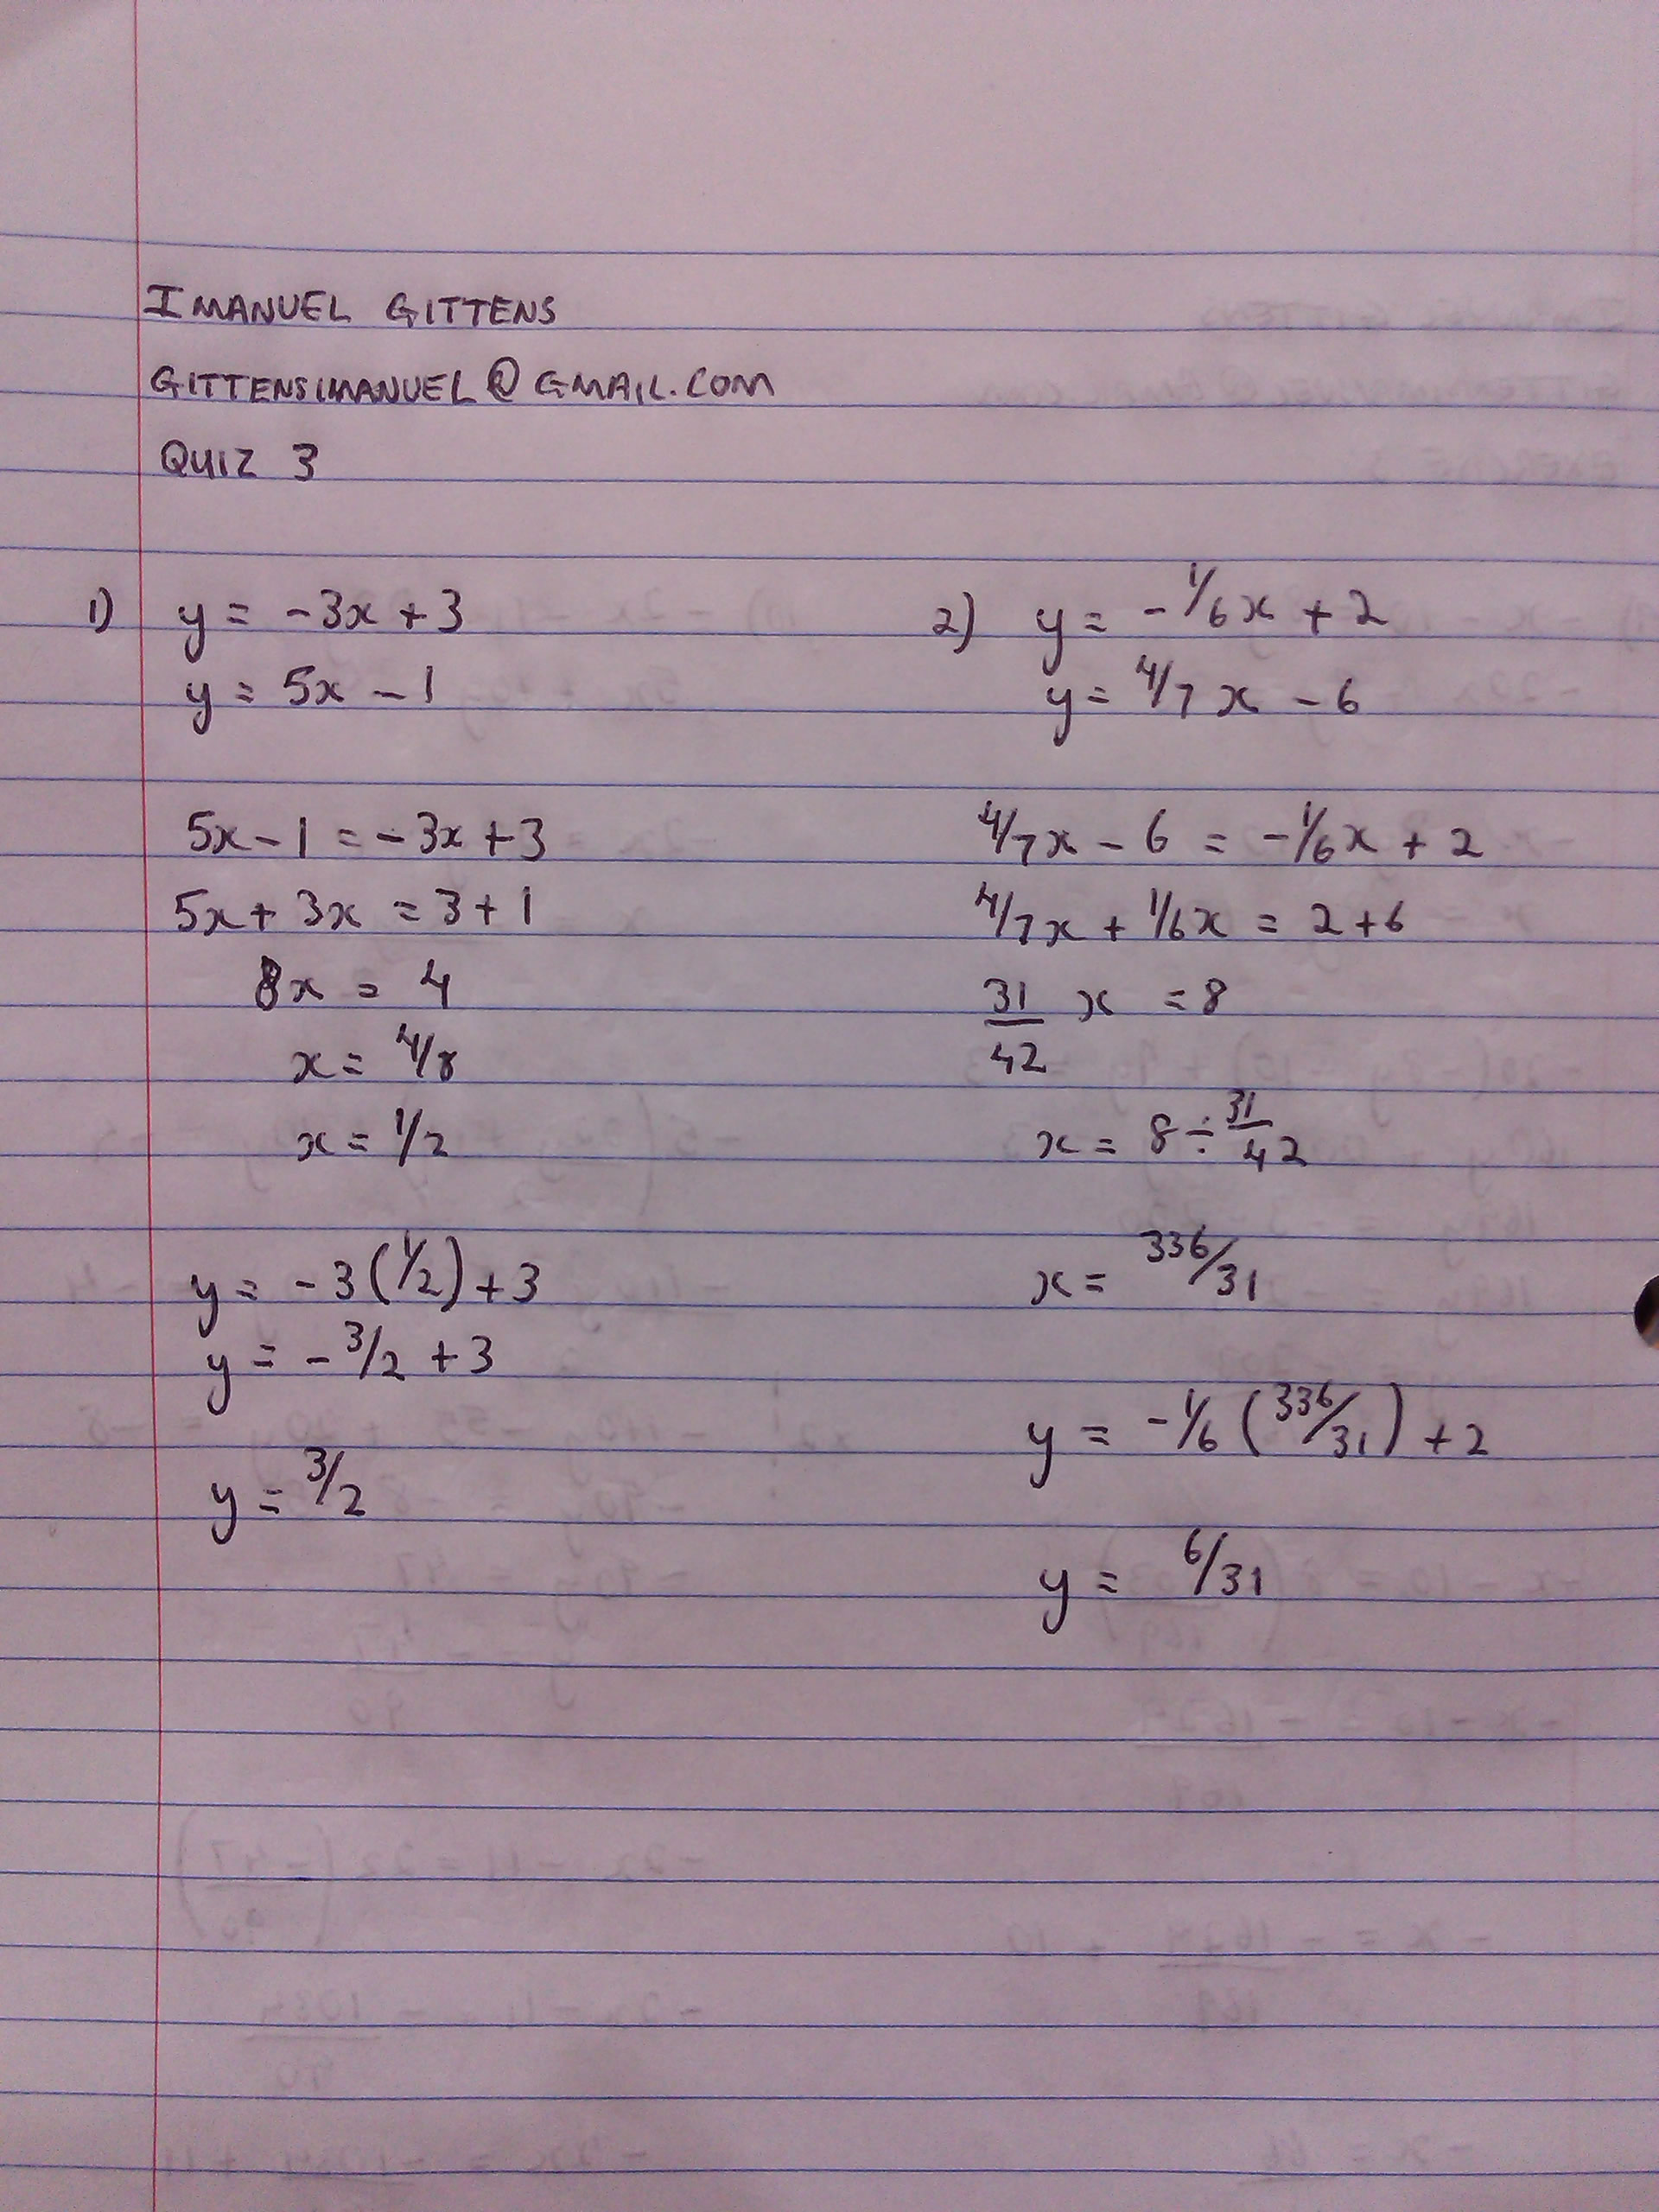 IMANUEL GITTENS
GITTENSIMANUEL@GMAIL.COM
QUIZ 3
1) y = -3x + 3
y = 5x - 1
5x - 1 = -3x + 3
5x + 3x = 3 + 1
8x = 4
x = 4/8
x = 1/2
y = -3(1/2) + 3
y = -3/2 + 3
y = 3/2
2) y = -1/6x + 2
y = 4/7x - 6
4/7x - 6 = -1/6x + 2
4/7x + 1/6x = 2 + 6
31/42 x = 8
x = 8 ÷ 31/42
x = 336/31
y = -1/6 (336/31) + 2
y = 6/31